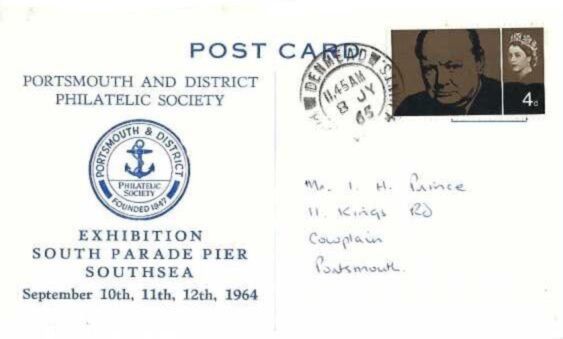 POST CARD
PORTSMOUTH AND DISTRICT
PHILATELIC SOCIETY
PORTSMOUTH & DISTRICT
PHILATELIC
SOCIETY
FOUNDED 1947
EXHIBITION
SOUTH PARADE PIER
SOUTHSEA
September 10th, 11th, 12th, 1964
DENMEAD
11.45AM
8 JY
65
4d
Mr. I. H. Prince
11. Kings Rd
Cowplain
Portsmouth.